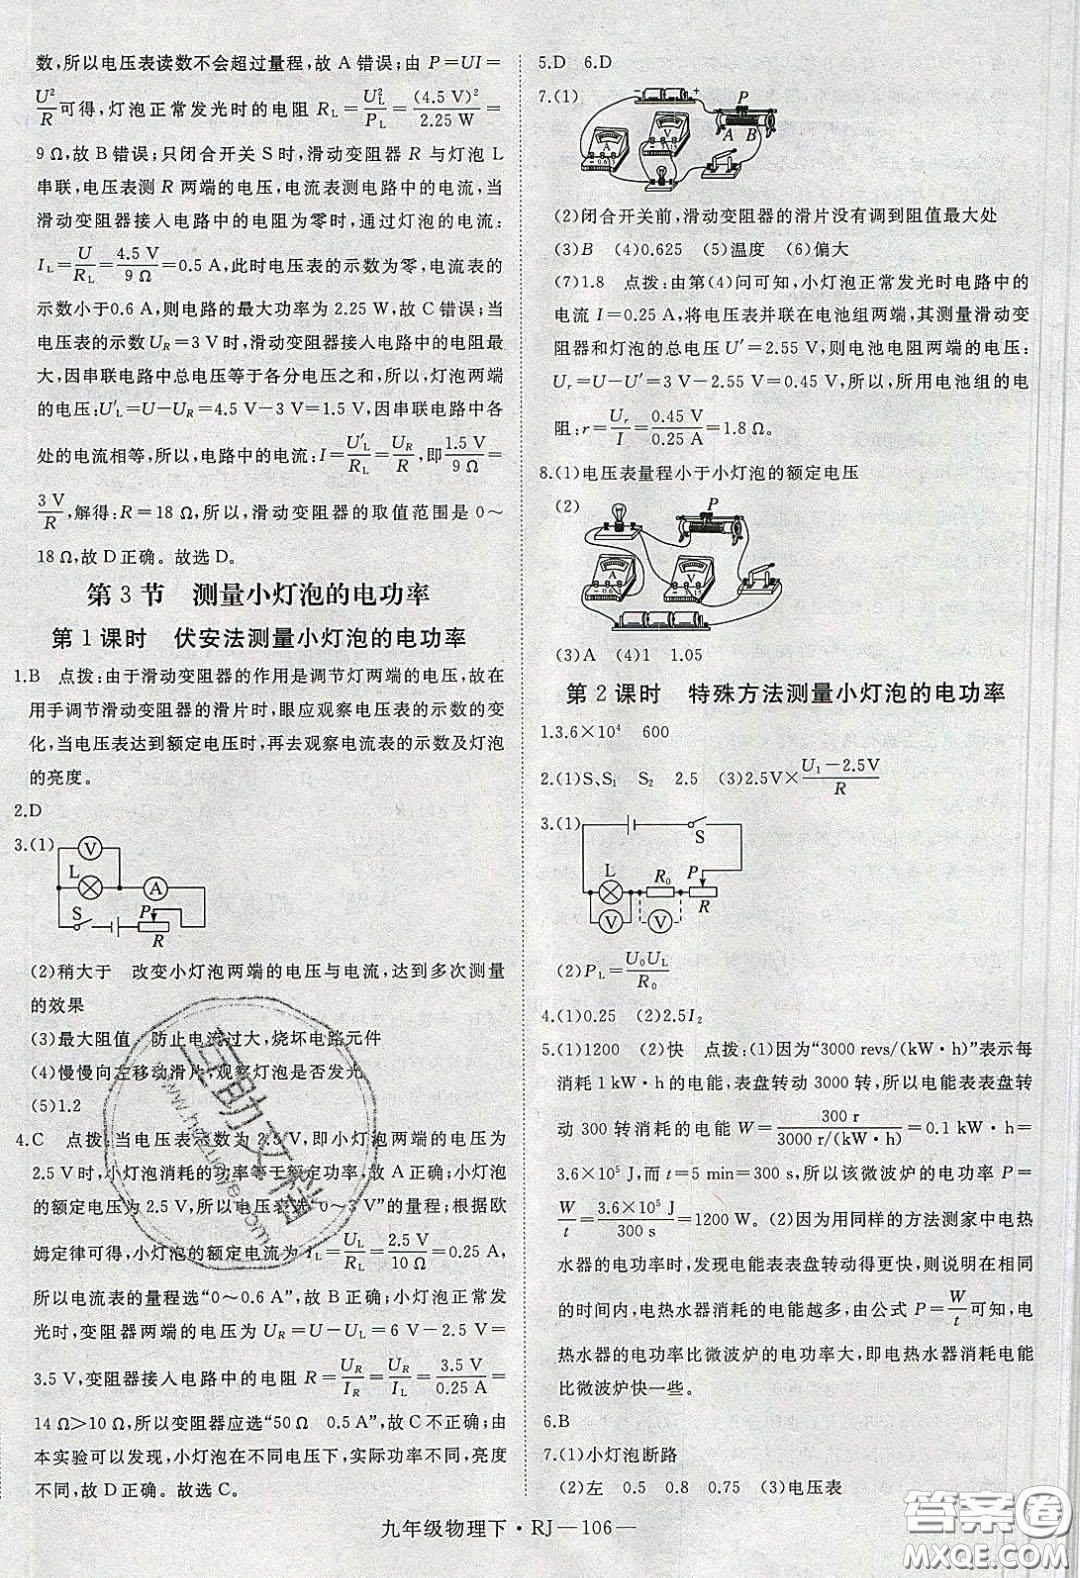 数，所以电压表读数不会超过量程，故 A 错误；由 P＝UI＝
U²/R 可得，灯泡正常发光时的电阻 R_L＝U_L²/P_L＝(4.5 V)²/2.25 W＝
9 Ω，故 B 错误；只闭合开关 S 时，滑动变阻器 R 与灯泡 L
串联，电压表测 R 两端的电压，电流表测电路中的电流，当
滑动变阻器接入电路中的电阻为零时，通过灯泡的电流：
I_L＝U/R_L＝4.5 V/9 Ω＝0.5 A，此时电压表的示数为零，电流表的
示数小于0.6 A，则电路的最大功率为 2.25 W，故 C 错误；当
电压表的示数 U_R＝3 V时，滑动变阻器接入电路中的电阻最
大，因串联电路中总电压等于各分电压之和，所以，灯泡两端
的电压：U′_L＝U－U_R＝4.5 V－3 V＝1.5 V，因串联电路中各
处的电流相等，所以，电路中的电流：I＝U′_L/R_L＝U_R/R，即1.5 V/9 Ω＝
3 V/R，解得：R＝18 Ω，所以，滑动变阻器的取值范围是 0～
18 Ω，故 D 正确。故选 D。
第 3 节　测量小灯泡的电功率
第 1 课时　伏安法测量小灯泡的电功率
1.B　点拨：由于滑动变阻器的作用是调节灯两端的电压，故在
用手调节滑动变阻器的滑片时，眼应观察电压表的示数的变
化，当电压表达到额定电压时，再去观察电流表的示数及灯泡
的亮度。
2.D
3.(1)
V
L
A
S
P
R
(2)稍大于　改变小灯泡两端的电压与电流，达到多次测量
的效果
(3)最大阻值　防止电流过大，烧坏电路元件
(4)慢慢向左移动滑片，观察灯泡是否发光
(5)1.2
4.C　点拨：当电压表示数为 2.5 V，即小灯泡两端的电压为
2.5 V时，小灯泡消耗的功率等于额定功率，故 A 正确；小灯泡
的额定电压为 2.5 V，所以电压表选“0～3 V”的量程；根据欧
姆定律可得，小灯泡的额定电流为 I_L＝U_L/R_L＝2.5 V/10 Ω＝0.25 A，
所以电流表的量程选“0～0.6 A”，故 B 正确；小灯泡正常发
光时，变阻器两端的电压为 U_R＝U－U_L＝6 V－2.5 V＝
3.5 V，变阻器接入电路中的电阻 R＝U_R/I_R＝U_R/I_L＝3.5 V/0.25 A＝
14 Ω＞10 Ω，所以变阻器应选“50 Ω　0.5 A”，故 C 不正确；由
本实验可以发现，小灯泡在不同电压下，实际功率不同，亮度
不同，故 D 正确。故选 C。
5.D　6.D
7.(1)
P
A　B
(2)闭合开关前，滑动变阻器的滑片没有调到阻值最大处
(3)B　(4)0.625　(5)温度　(6)偏大
(7)1.8　点拨：由第(4)问可知，小灯泡正常发光时电路中的
电流 I＝0.25 A，将电压表并联在电池组两端，其测量滑动变
阻器和灯泡的总电压 U′＝2.55 V，则电池电阻两端的电压：
U_r＝U－U′＝3 V－2.55 V＝0.45 V，所以，所用电池组的电
阻：r＝U_r/I＝0.45 V/0.25 A＝1.8 Ω。
8.(1)电压表量程小于小灯泡的额定电压
(2)
P
V
A
(3)A　(4)1　1.05
第 2 课时　特殊方法测量小灯泡的电功率
1.3.6×10⁴　600
2.(1)S、S₁　S₂　2.5　(3)2.5V×(U₁－2.5V)/R
3.(1)
S
L
R₀
P
R
V
V
(2)P_L＝U₀U_L/R₀
4.(1)0.25　(2)2.5I₂
5.(1)1200　(2)快　点拨：(1)因为“3000 revs/(kW·h)”表示每
消耗 1 kW·h 的电能，表盘转动 3000 转，所以电能表表盘转
动 300 转消耗的电能 W＝300 r/3000 r/(kW·h)＝0.1 kW·h＝
3.6×10⁵ J，而 t＝5 min＝300 s，所以该微波炉的电功率 P＝
W/t＝3.6×10⁵ J/300 s＝1200 W。(2)因为用同样的方法测家中电热
水器的电功率时，发现电能表表盘转动得更快，则说明在相同
的时间内，电热水器消耗的电能越多，由公式 P＝W/t 可知，电
热水器的电功率比微波炉的电功率大，即电热水器消耗电能
比微波炉快一些。
6.B
7.(1)小灯泡断路
(2)左　0.5　0.8　0.75　(3)电压表
九年级物理下·RJ—106—
互助文档
答案圈
MXQE.COM